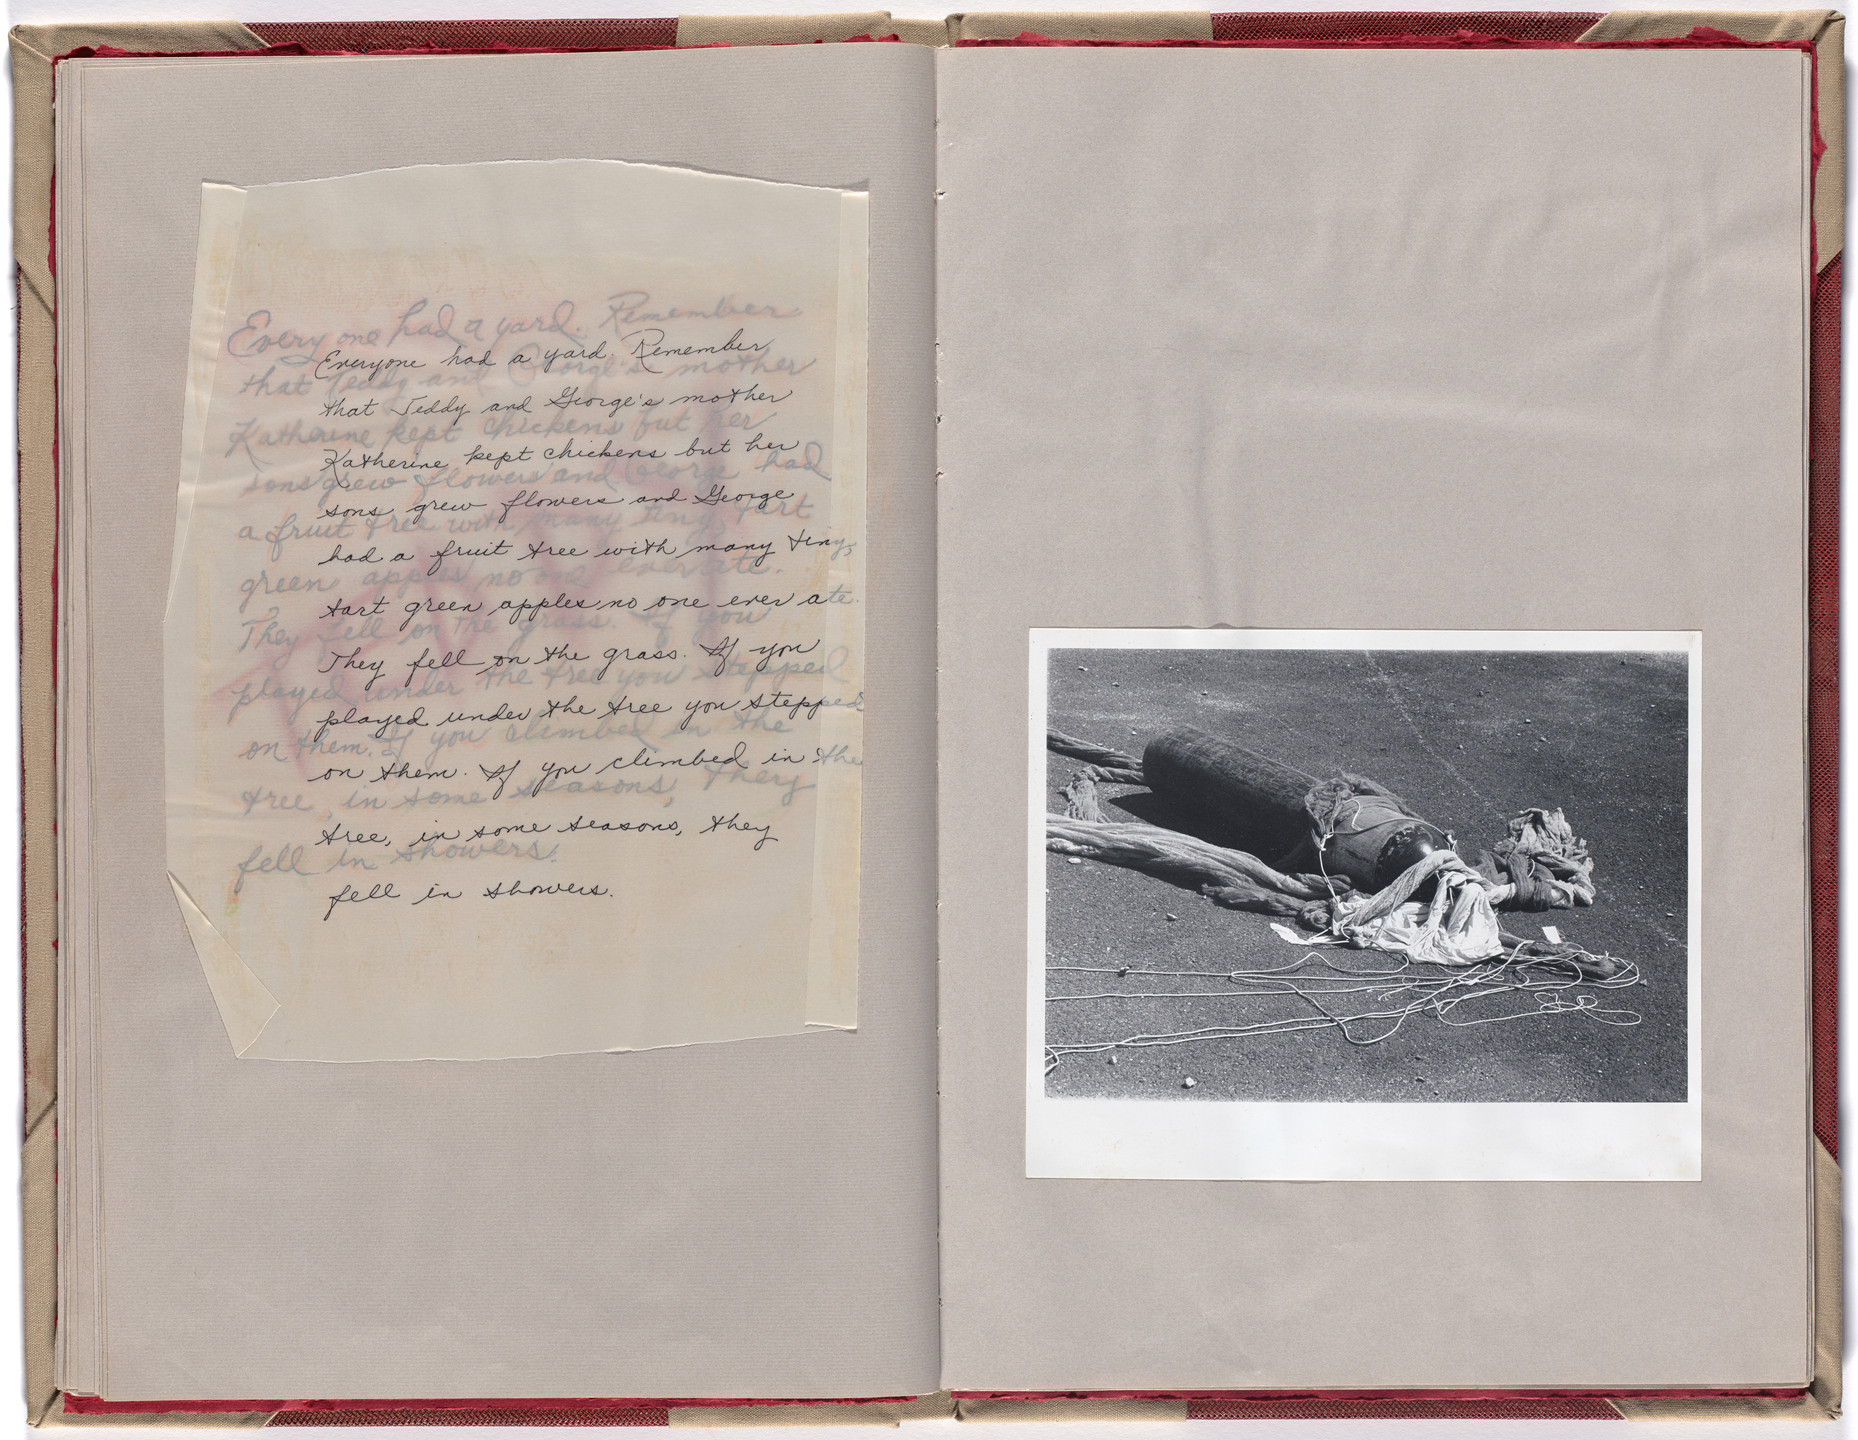 Everyone had a yard. Remember
that Teddy and George's mother
Katherine kept chickens but her
sons grew flowers and George
had a fruit tree with many tiny,
tart green apples no one ever ate.
They fell on the grass. If you
played under the tree you stepped
on them. If you climbed in the
tree, in some seasons, they
fell in showers.
Every one had a yard. Remember
that Teddy and George's mother
Katherine kept chickens but her
sons grew flowers and George had
a fruit tree with many tiny, tart
green apples no one ever ate.
They fell on the grass. If you
played under the tree you stepped
on them. If you climbed in the
tree, in some seasons, they
fell in showers.